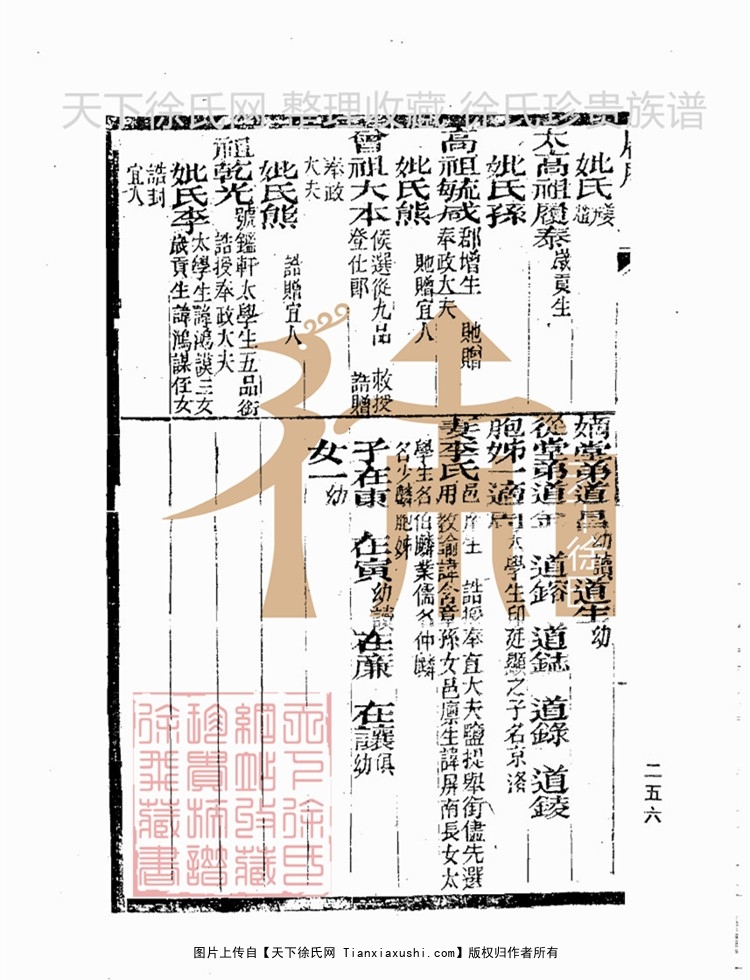 天下徐氏网 整理收藏 徐氏珍贵族谱
妣氏
太高祖履泰 歲貢生
妣氏孫
高祖毓咸 郡增生 貤贈奉政大夫
妣氏熊 貤贈宜人
曾祖大本 候選從九品 敕授登仕郎 誥贈奉政大夫
妣氏熊 誥贈宜人
祖乾光 號鑑軒太學生五品銜誥授奉政大夫
妣氏李 歲貢生諱鴻謀侄女太學生諱鴻謨三女誥封宜人
嫡堂弟道昌 幼讀 道生 幼
從堂弟道金 道鎔 道鋕 道錄 道錂
胞姊一適周 太學生印延顯之子名京洛
妻李氏 邑庠生 誥授奉直大夫鹽提舉銜儘先選用教諭諱含章孫女邑廩生諱屏南長女太學生名伯麟業儒名仲麟名少麟胞姊
子在東 在寅 幼讀 在廉 在讓 俱幼
女一 幼
二五六
徐氏
天下徐氏網站收藏珍貴族譜徐氏藏書
图片上传自【天下徐氏网 Tianxiaxushi.com】版权归作者所有